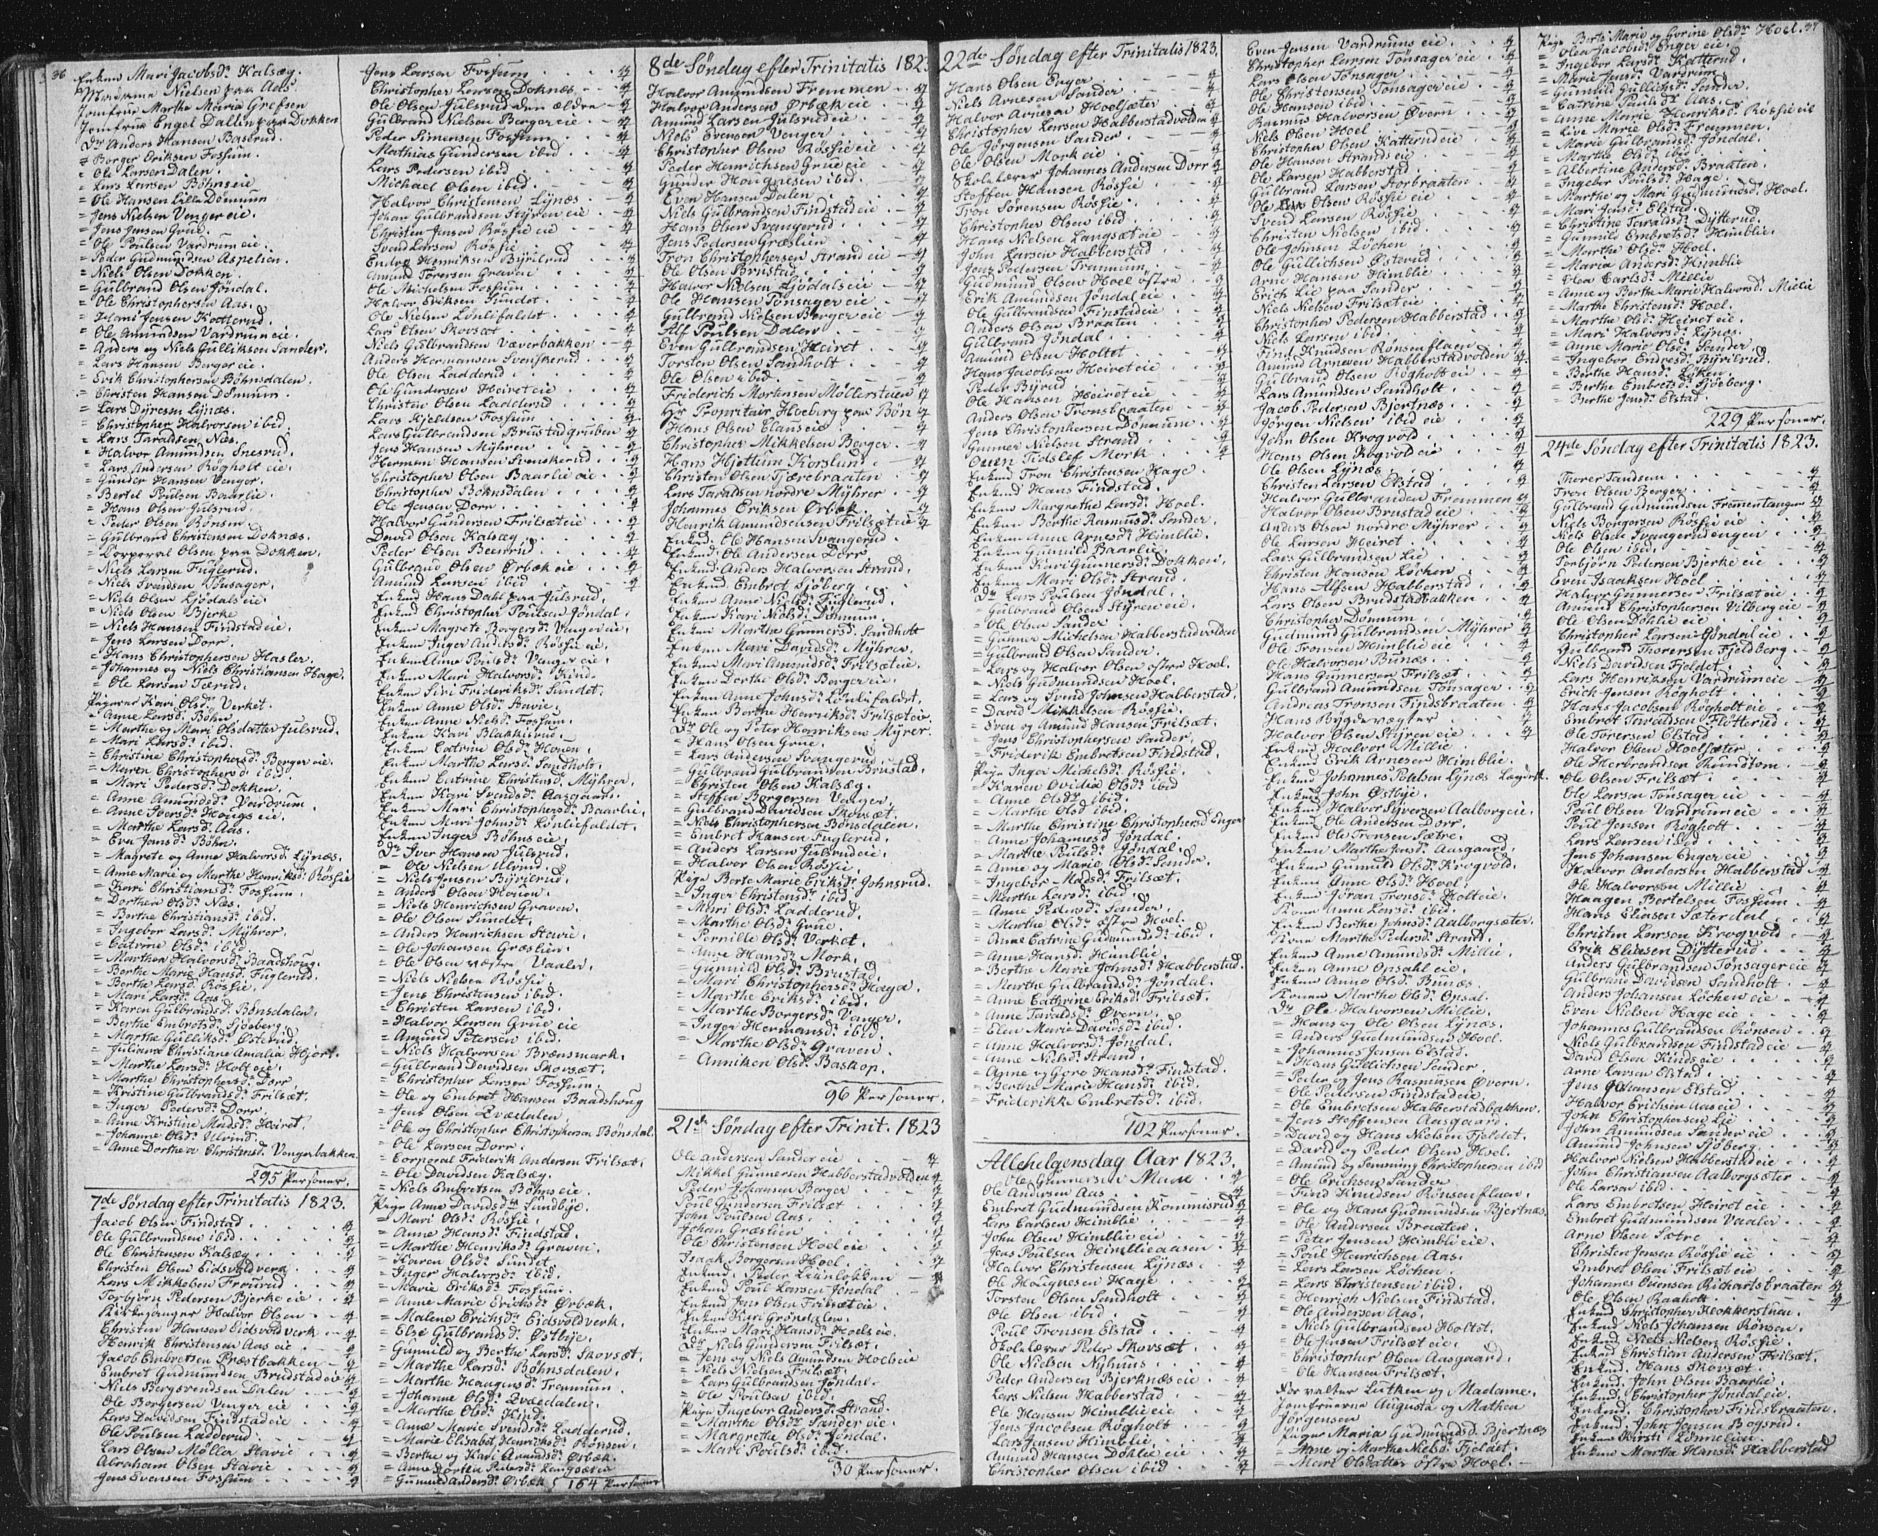 36
Enken Mari Jacobsdr. Kalsæg.
Madame Nielsen paa Aas
Jomfrue Marthe Marie Grefsen
Jomfrue Engel Dallin paa Dokken
Dr. Anders Hansen Baslerud
= Borger Eriksen Fossum.
= Ole Larsen Dalen.
= Lars Larsen Böhnseie
= Ole Hansen Lilla Dömum
= Jens Nielsen Venger eie.
= Jens Jensen Grue.
= Ole Poulsen Vardrum eie.
= Peder Gudmundsen Aspelien.
= Niels Olsen Dokken.
= Gulbrand Olsen Jöndal.
= Ole Christophersen Aas.
= Hans Jensen Katterud.
= Ole Amundsen Vardrum eie.
= Anders og Niels Gulliksen Sander.
= Lars Hansen Berger eie.
= Erik Christophersen Böhnsdalen.
= Christen Hansen Dömum.
= Lars Dyresen Lynæs.
= Christopher Halvorsen ibid.
= Lars Taraldsen Næs.
= Halvor Amundsen Snesrud.
= Lars Andersen Rögholt eie.
= Gunder Hansen Venger.
= Bertel Poulsen Baarlie.
= Hans Olsen Julsrud.
= Peder Olsen Rönsen.
= Gulbrand Christensen Doknæs.
= Corporal Olsen paa Dokken.
= Niels Larsen Fuglerud.
= Niels Olsen Ljödals eie.
= Niels Olsen Bjerke.
= Niels Hansen Findstad eie.
= Jens Larsen Dorr.
= Hans Christophersen Hasler.
= Johannes og Niels Christiansen Hage.
= Ole Larsen Tærud.
Pigerne Kari Olsdr. Verket.
= Anne Larsdr. Böhn.
= Marthe og Mari Olsdatter Julsrud.
= Mari Larsdr. ibid.
= Christine Christophersdr. Berger eie.
= Maren Christophersdr. ibid.
= Mari Pedersdr. Dokken.
= Anne Amundsdr. Vardrum.
= Anne Iversdr. Hougs eie.
= Marthe Larsdr. Aas.
= Eva Jensdr. Böhn.
= Magrete og Anne Halvorsdr. Lynæs.
= Anne Marie og Marthe Henriksdr. Rösfie
= Kari Christiansdr. Fossum.
= Dorthea Olsdr. Næs.
= Berthe Christiansdr. ibid.
= Ingebor Larsdr. Myhrer.
= Catrine Olsdr. ibid.
= Marthea Halvorsdr. Baadshoug.
= Berthe Marie Hansdr. Fuglerud.
= Berthe Larsdr. Rösfie.
= Mari Larsdr. Aas.
= Karen Gulbrandsdr. Bönsdalen.
= Berthe Embretsdr. Sjöberg.
= Marthe Gulliksdr. Österud.
= Juliana Christiane Amalia Hjort.
= Marthe Larsdr. Holt eie.
= Marthe Christophersdr. Dorr.
= Kristine Gulbrandsdr. Frilsæt.
= Inger Pedersdr. Dorr.
= Anne Kristine Madsdr. Heiret.
= Johanne Olsdr. Ulvind.
= Anne Dorthea Christensdr. Vengerbakken.
295 Personer.
7de Söndag efter Trinitatis 1823.
Jacob Olsen Findstad
Ole Gulbrandsen ibid.
Ole Christensen Kalsæg
Christen Olsen Eidsvoldverk
Lars Mikkelsen Frourud
Torbjörn Pedersen Bjerke eie
Christen Hansen Eidsvoldverk
Henrik Christensen Aas eie
Jacob Embretsen Præstbakken
Embret Gudmundsen Brudstad eie
Niels Bergsvendsen Dalen
Ole Borgersen Venger eie
Lars Davidsen Findstad eie
Ole Poulsen Ladderud
Lars Olsen Møller Stavie
Abraham Olsen Stavie
Jens Evensen Fossum
Jens Larsen Fossum
Christopher Larsen Doknæs
Ole Olsen Julsrud den ældre
Gulbrand Nielsen Berger eie
Peder Simensen Fossum
Mathias Gundersen ibid.
Lars Pedersen ibid.
Michael Olsen ibid.
Halvor Christensen Lynæs
Johan Gulbrandsen Styren eie
Christen Jensen Rösfie eie
Svend Larsen Rösfie
Endre Henriksen Byrilrud
Amund Torersen Graven
Ole Michelsen Fossum
Halvor Eriksen Sundet
Ole Nielsen Lönlifaldet
Lars Olsen Skovsæt
Niels Gulbrandsen Væverbakken
Anders Hermansen Svenskerud
Ole Olsen Ladderud
Ole Gundersen Heiret eie
Christen Olsen Ladderud
Lars Kjeldsen Fossum
Lars Gulbrandsen Brustadgruben
Jens Hansen Myhrer
Herman Hansen Svenskerud
Christopher Olsen Baarlie eie
Christopher Bøhnsdalen
Ole Jensen Dorr
Halvor Gundersen Frilsæt eie
David Olsen Kalsæg
Peder Olsen Beenrud
Gulbrand Olsen Ørbæk eie
Amund Larsen ibid
Enken Hans Dahl paa Julsrud.
Enken Christopher Poulsen Jöndal.
Enken Magrete Borgersdr. Venger eie.
Enken Inger Andersdr. Rösfie eie
Enken Anne Poulsdr. Venger eie.
Enken Mari Halvorsdr. Kind.
Enken Siri Frideriksdr. Sundet.
Enken Anne Olsdr. Stavie.
Enken Anne Nielsdr. Fossum.
Enken Kari Blakkisrud.
Enken Catrine Olsdr. Honen.
Enken Marthe Larsdr. Sandholt.
Enken Catrine Christensdr. Myhrer.
Enken Kari Svendsdr. Aasgaard.
Enken Mari Christophersdr. Baarlie.
Enken Mari Johnsdr. Lönlifaldet.
Enken Inger Böhns eie.
Dr. Iver Hansen Julsrud.
= Ole Nielsen Ulvind.
= Niels Jensen Byrilrud.
= Anders Olsen Honen.
= Niels Henrichsen Graven.
= Ole Olsen Sundet.
= Anders Henrichsen Stavie.
= Ole Johansen Græslien.
= Niels Nielsen Rösfie.
= Jens Christensen ibid.
= Christen Larsen ibid.
= Halvor Larsen Grue eie
= Amund Petersen ibid.
= Niels Halvorsen Brænsmark.
= Gulbrand Davidsen Skovsæt.
= Christopher Larsen Fossum.
= Ole og Embret Hansen Baadshoug
= Jens Olsen Qvædalen.
= Ole og Christopher Christophersen Bönsdal.
= Ole Larsen Dorr.
= Corporal Friderik Andersen Frilsæt.
= Ole Davidsen Kalsæg.
= Niels Embretsen Böhns eie.
Pige Anne Davidsdr. Sundbye.
= Mari Olsdr. Rösfie.
= Anne Hansdr. Findstad.
= Marthe Henriksdr. Graven.
= Karen Olsdr. Sundet
= Inger Halvorsdr. ibid.
= Marie Eriksdr. Fossum.
= Anne Marie Ericksdr. Ørbæk.
= Malene Eriksdr. Eidsvoldverk.
= Else Gulbrandsdr. Östbye.
= Gunnild og Berthe Larsdr. Skovsæt.
= Marthe Larsdr. Böhnsdalen.
= Marthe Haugensdr. Trømnum.
= Johanne Olsdr. Qvædalen.
= Marthe Olsdr. Kind.
= Anne Marie Svendsdr. Ladderud.
= Marie Elisabet Henriksdr. Rönsen.
= Berthe og Kari Amundsdr. Ørbæk.
= Anne Dorthea Pedersdr. Langsæter
= Gunnild Andersdr. Ørbæk
164 Personer
8de Söndag efter Trinitatis 1823
Halvor Amundsen Frenmen
Halvor Andersen Ørbæk eie
Amund Larsen Julsrud eie
Niels Evensen Venger
Christopher Olsen Rösfie eie
Peder Henrichsen Grue eie
Gunder Hougnesen ibid.
Even Hansen Dalen
Niels Gulbrandsen Findstad eie
Hans Olsen Svangerud
Jens Pedersen Græslien
Tron Christophersen Strand eie
Ole Olsen Brustad
Halvor Nielsen Ljödals eie
Ole Hansen Tönsager eie
Gulbrand Nielsen Berger eie
Alf Poulsen Dalen
Even Gulbrandsen Heiret
Torsten Olsen Sandholt
Ole Olsen ibid
Friderich Mortensen Möllerstuen
Hr. Propritair Hoeberg paa Bön
Hans Olsen Elaus eie
Christopher Mikkelsen Berger
Hans Hjettum Korslund
Christen Olsen Tjærebraaten
Lars Taraldsen nordre Myhrer
Johannes Eriksen Ørbek
Henrik Amundsensen Frilsæt eie
Enkmd. Ole Hansen Svangerud
Enkmd. Ole Andersen Dorr
Enkmd. Anders Halvorsen Strand.
Enkmd. Embret Sjöberg
Enken Anne Nielsdr. Fuglerud.
Enken Kari Nielsdr. Dömum.
Enken Marthe Gunnersdr. Sandholt
Enken Mari Davidsdr. Myhrer.
Enken Mari Amundsdr. Frilsæt eie.
Enken Dorthe Olsdr. Berger eie.
Enken Anne Johnsdr. Lönlifaldet.
Enken Berthe Henriksdr. Frilsæt eie.
Dr. Ole og Peter Henriksen Myrer.
= Hans Olsen Grue.
= Lars Andersen Svangerud.
= Gulbrand Gulbrandsen Brustad.
= Christen Olsen Kalsæg.
= Steffen Borgersen Venger.
= Gulbrand Davidsen Skovsæt.
= Niels Christophersen Bönsdalen.
= Embret Hansen Fuglerud.
= Anders Larsen Julsrud eie.
= Halvor Olsen Rösfie.
Pige Berte Marie Eriksdr. Johnsrud.
= Inger Christensdr. ibid.
= Mari Olsdr. Ladderud.
= Marthe Olsdr. Grue.
= Pernille Olsdr. Verket.
= Anne Hansdr. Mork.
= Gunnild Olsdr. Brustad.
= Mari Christophersdr. Haga.
= Marthe Eriksdr. ibid.
= Marthe Borgersdr. Venger.
= Inger Hermansdr. ibid.
= Marthe Olsdr. Graven.
= Anniken Olsdr. Baskop.
96 Personer.
21de Söndag efter Trinit. 1823
Ole Andersen Sander eie
Mikkel Gunnersen Habberstadvolden
Peder Johansen Berger
Poul Gundersen Frilsæt
John Poulsen Aas
Johan Græslien
Ole Christensen Hoel eie
Isaak Borgersen Hoel
Enkmd. Peder Lianlokken
Enkmd. Poul Larsen Jöndal
Enkmd. Jens Olsen Frilsæt eie
Enken Kari Gröndalen
Enken Mari Hansdr. Hoels eie.
Dr. Niels Gundersen Frilsæt.
= Jens og Niels Amundsen Hoels eie
= Niels Nielsen Frilsæt.
= Lars Gulbrandsen Jöndal.
= Ole Poulsen ibid.
Pige Ingebor Andersdr. Strand.
= Marthe Olsdr. Sander eie.
= Margrethe Olsdr. Jöndal.
= Mari Poulsdr. ibid.
30 Personer.
22de Söndag efter Trinitatis 1823.
Hans Olsen Enger
Niels Arnesen Sander
Halvor Arnesen Hoelsæter
Christopher Larsen Habberstadvolden
Ole Jörgensen Sander
Ole Olsen Mork eie
Skolelærer Johannes Andersen Dorr
Steffen Hansen Rösfie
Tron Sörensen Rösfie
Christopher Olsen ibid.
Hans Nielsen Langsæt eie
John Larsen Habberstad
Jens Pedersen Trømnum
Gudmund Olsen Hoel østre
Erik Amundsen Jöndal eie
Ole Gulbrandsen Finstad eie
Anders Olsen Braaten
Gulbrand Jöndal
Amund Olsen Holtet
Hans Jacobsen Heiret eie
Peder Byrud
Ole Hansen Heiret eie
Anders Olsen Tronsbraaten
Jens Christophersen Dömum
Gunner Nielsen Strand
Ouen Tidslef Mork
Enkmd. Tron Christensen Hage
Enkmd. Hans Findstad.
Enken Margrethe Larsdr. Hoel.
Enken Berthe Rasmusdr. Sander.
Enken Anne Arnesdr. Himblie.
Enken Gunnild Baarlie.
Enken Kari Gunnersdr. Dokken.
Enken Mari Olsdr. Strand.
Dr. Lars Poulsen Jöndal.
= Gulbrand Olsen Styren eie.
= Ole Olsen Sander
= Gunner Michelsen Habberstadvolden
= Gulbrand Olsen Sander.
= Lars og Halvor Olsen østre Hoel.
= Niels Gudmundsen Hoel.
= Lars og Svend Johnsen Habberstad.
= David Mikkelsen Rösfie.
= Sven og Amund Hansen Frilsæt.
= Jens Christophersen Sander.
= Friderik Embretsen Findstad.
Pige Inger Michelsdr. Rösfie.
= Karen Ovidia Olsdr. ibid
= Anne Olsdr. ibid.
= Marthe Olsdr. ibid.
= Marthe Christine Christophersdr. Enger
= Anne Johannesdr. Jöndal.
= Marthe Poulsdr. Jöndal.
= Anne og Marie Olsdr. Sander.
= Ingebor Madsdr. Frilsæt.
= Marthe Larsdr. ibid
= Anne Pedersdr. Sander.
= Marthe Olsdr. østre Hoel.
= Anne Catrine Gudmundsdr. ibid.
= Anne Hansdr. Himblie.
= Berthe Marie Johnsdr. Habberstad.
= Marthe Gulbrandsdr. Jöndal.
= Anne Cathrine Eriksdr. Frilsæt.
= Anne Taraldsdr. Øvern.
= Elen Marie Davidsdr. ibid.
= Anne Halvorsdr. Jöndal.
= Anne Nielsdr. Strand.
= Anne og Goro Hansdr. Findstad.
= Berthe Marie Hansdr. ibid.
= Friderikke Embretsdr. ibid.
102 Personer.
Allehelgensdag Aar 1823.
Ole Gunnersen Mune
Ole Andersen Aas
Embret Gudmundsen Kommisrud
Lars Carlsen Himblie
John Olsen Himblie eie
Jens Poulsen Himblieaasen
Halvor Christensen Lynæs
Ole Haagnesen Hage
Torsten Olsen Sandholt
Ole Olsen ibid
Poul Tronsen Elstad
Skolelærer Peder Skovsæt
Ole Nielsen Nyhuus
Peder Andersen Bjerknæs eie
Lars Nielsen Habberstad
Ole Hansen Himblie eie
Jens Jacobsen Rögholt
Lars Jensen Himblie
Amund Hansen Döhlie eie
Christopher Olsen ibid
Even Jensen Vardrums eie
Christopher Larsen Tönsager eie
Lars Olsen Tönsager
Ole Christensen Tönsager eie
Ole Hansen ibid.
Rasmus Halvorsen Øvern
Niels Olsen Hoel
Christopher Olsen Katterud eie
Ole Hansen Strands eie
Ole Larsen Habberstad
Gulbrand Larsen Storbraaten
Ole Olsen Rösfie eie
Svend Larsen Rösfie
Christen Nielsen ibid.
Ole Johnsen Löchen
Ole Gullichsen Østerud
Arne Hansen Himblie
Erich Lie paa Sander
Niels Nielsen Frilsæt eie
Christopher Pedersen Habberstad
Niels Larsen ibid.
Find Knudsen Rönsenflaen
Amund Arnesen Habberstadvolden
Gulbrand Olsen Rögholt eie
Lars Amundsen Sandholt
Jacob Pedersen Bjertnæs
Jörgen Nielsen ibid eie
John Olsen Krogvold
Hans Olsen Krogvold eie
Ole Olsen Lynæs
Christen Larsen Elstad
Halvor Gulbrandsen Frømmen
Halvor Olsen Brustad eie
Anders Olsen nordre Myhrer
Ole Larsen Heiret
Lars Gulbrandsen Lie
Christen Hansen Løcken
Hans Alfsen Habberstad
Lars Olsen Brudstadbakken
Christopher Dömum
Gudmund Gulbrandsen Myhrer
Ole Tronsen Himblie eie
Ole Halvorsen Bunæs
Hans Gunnersen Frilsæt
Gulbrand Amundsen Tönsager
Andreas Tronsen Findsbraaten
Hans Bygdevægter
Halvor Olsen Styren eie
Enkmd. Halvor Millie
Enkmd. Erik Arnesen Himblie.
Enkmd. Johannes Poulsen Lynæs Laugretm.
Enkmd. John Østbye.
Enkmd. Halvor Syversen Aalborg eie
Enkmd. Ole Andersen Dorr.
Enkmd. Ole Tronsen Sætre.
Enken Marthe Jensdr. Aasgaard.
Enken Gunnild Olsdr. Krogvold.
Enken Anne Olsdr. Hoel.
Enken Göran Tronsdr. Holt eie.
Kone Anne Larsdr. ibid.
Enken Berthe Johnsdr. Aalborgsæter.
Kone Marthe Pedersdr. Strand.
Enken Anne Amundsdr. Millie.
Enken Anne Opsahl eie.
Enken Anne Olsdr. Bunæs.
Konen Marthe Olsdr. Opsal.
Dr. Ole Halvorsen Millie.
= Hans og Ole Olsen Lynæs.
= Anders Gudmundsen Hoel.
= Johannes Jensen Elstad.
= Hans Gullichsen Sander.
= Peder og Jens Rasmusen Øvern.
= Ole Pedersen Findstad eie.
= Ole Embretsen Habberstadbakken.
= Jens Steffensen Aasgaard.
= David og Hans Nielsen Fjeldet.
= David og Peder Olsen Hoel.
= Amund og Flemming Christophersen ibid
= Ole Erichsen Sander
= Find Knudsen Rönsenflaen.
= Ole og Hans Gudmundsen Bjertnæs.
= Ole Andersen Braaten.
= Peter Jensen Himblie eie.
= Poul Henrichsen Aas.
= Lars Larsen Löchen.
= Lars Christensen ibid.
= Henrich Nielsen Findstad.
= Ole Andersen Aas
= Niels Gulbrandsen Holtet.
= Ole Jensen Frilsæt eie.
= Christopher Olsen Aasgaard.
= Ole Hansen Frilsæt.
Hr. Valker Lütken og Madame.
Jomfruerne Augusta og Mathea
Jörgensen
Piger Maria Gudmundsdr. Bjertnæs
= Anne og Marthe Nielsdr. Fjeldet.
= Mari Olsdatter østre Hoel.
37
Pige Berte Marie og Gorine Olsdr. Hoel.
= Olea Jacobsdr. Enger eie.
= Ingebor Larsdr. Katterud.
= Marie Jensdr. Vardrum.
= Gunnild Gullichsdr. Sander.
= Catrine Poulsdr. Aas.
= Anne Marie Henriksdr. Rösfie eie
= Live Marie Olsdr. Frømmen.
= Marie Gulbrandsdr. Jöndal.
= Marthe Olsdr. ibid
= Albertine Andersdr. Braaten.
= Ingebor Poulsdr. Hage.
= Marthe og Mari Gudmundsdr. Hoel.
= Mari Jensdr. Elstad.
= Christine Taraldsdr. Dytterud.
= Gunnild Embretsdr. Himblie.
= Marthe Olsdr. Hoel.
= Maria Andersdr. Himblie
= Olea Carlsdr. Millie
= Anne og Berthe Marie Halvorsdr. Mielie
= Marthe Christensdr. Hoel.
= Marthe Olsdr. Heiret eie.
= Mari Halvorsdr. Lynæs.
= Anne Marie Olsdr. Sander.
= Ingebor Endresdr. Byrilrud.
= Berthe Hansdr. Løken.
= Berthe Embretsdr. Sjöberg.
= Berthe Jensdr. Elstad.
229 Personer.
24de Söndag efter Trinitatis 1823.
Thorer Tandsem
Tron Olsen Berger
Gulbrand Gudmundsen Frømmentangen
Niels Borgersen Rösfie eie
Niels Olsen Svangerudengen
Ole Olsen ibid.
Torbjörn Pedersen Bjerke eie
Even Isaaksen Hoel
Halvor Gunnersen Frilsæt eie
Amund Christophersen Vilberg eie
Ole Olsen Döhlie eie
Christopher Larsen Jöndal eie
Gulbrand Thorersen Fjeldberg
Niels Davidsen Fjeldet
Lars Henriksen Vardrum eie
Erich Jensen Rögholt
Hans Jacobsen Rögholt eie
Embret Taraldsen Flötterud
Ole Torersen Elstad
Halvor Olsen Hoelsæter
Ole Herbrandsen Rundtom
Ole Olsen Frilsæt
Ole Larsen Tönsager eie
Poul Olsen Vardrum eie
Poul Jensen Rögholt
Lars Larsen ibid
Jens Johansen Enger eie
Halvor Andersen Habberstad
Ole Halvorsen Millie
Haagen Bertelsen Fossum
Hans Eliasen Sæterdal
Christen Larsen Krogvold
Erik Eliesen Dytterud
Anders Gulbrandsen Tönsager eie
Gulbrand Davidsen Sandholt
Anders Johansen Löchen eie
Even Nielsen Hage eie
Johannes Gulbrandsen Rönsen
Niels Gulbrandsen Findstad eie
David Olsen Kinds eie
Arne Larsen Elstad
Jens Johansen Elstad
Halvor Erichsen Aas eie
John Christophersen Lie
John Amundsen Sander eie
Amund Johnsen Sjöberg
Halvor Nielsen Habberstad eie
John Christiansen Aalborgsæter
Ole Larsen ibid
Lars Embretsen Heiret eie
Embret Gudmundsen Vaaler
Arne Olsen Sætre
Christen Jensen Rösfie eie
Embret Olsen Frilsæt eie
Johannes Ouensen Richartsbraaten
Ole Olsen Raaholt
Enkmd. Christopher Klokkerstuen.
Enkmd. Niels Johansen Rönsen.
Enkmd. Niels Nielsen Rösfie.
Enkmd. Christian Andersen Frilsæt.
Enkmd. Hans Skovsæt
Enkmd. John Olsen Baarlie.
Enkmd. Christopher Jöndal eie.
Enkmd. Christopher Findsbraaten.
Enkmd. John Jensen Bogsrud.
Enken Kirsti Lönnelien.
Enken Marthe Hansdr. Habberstad